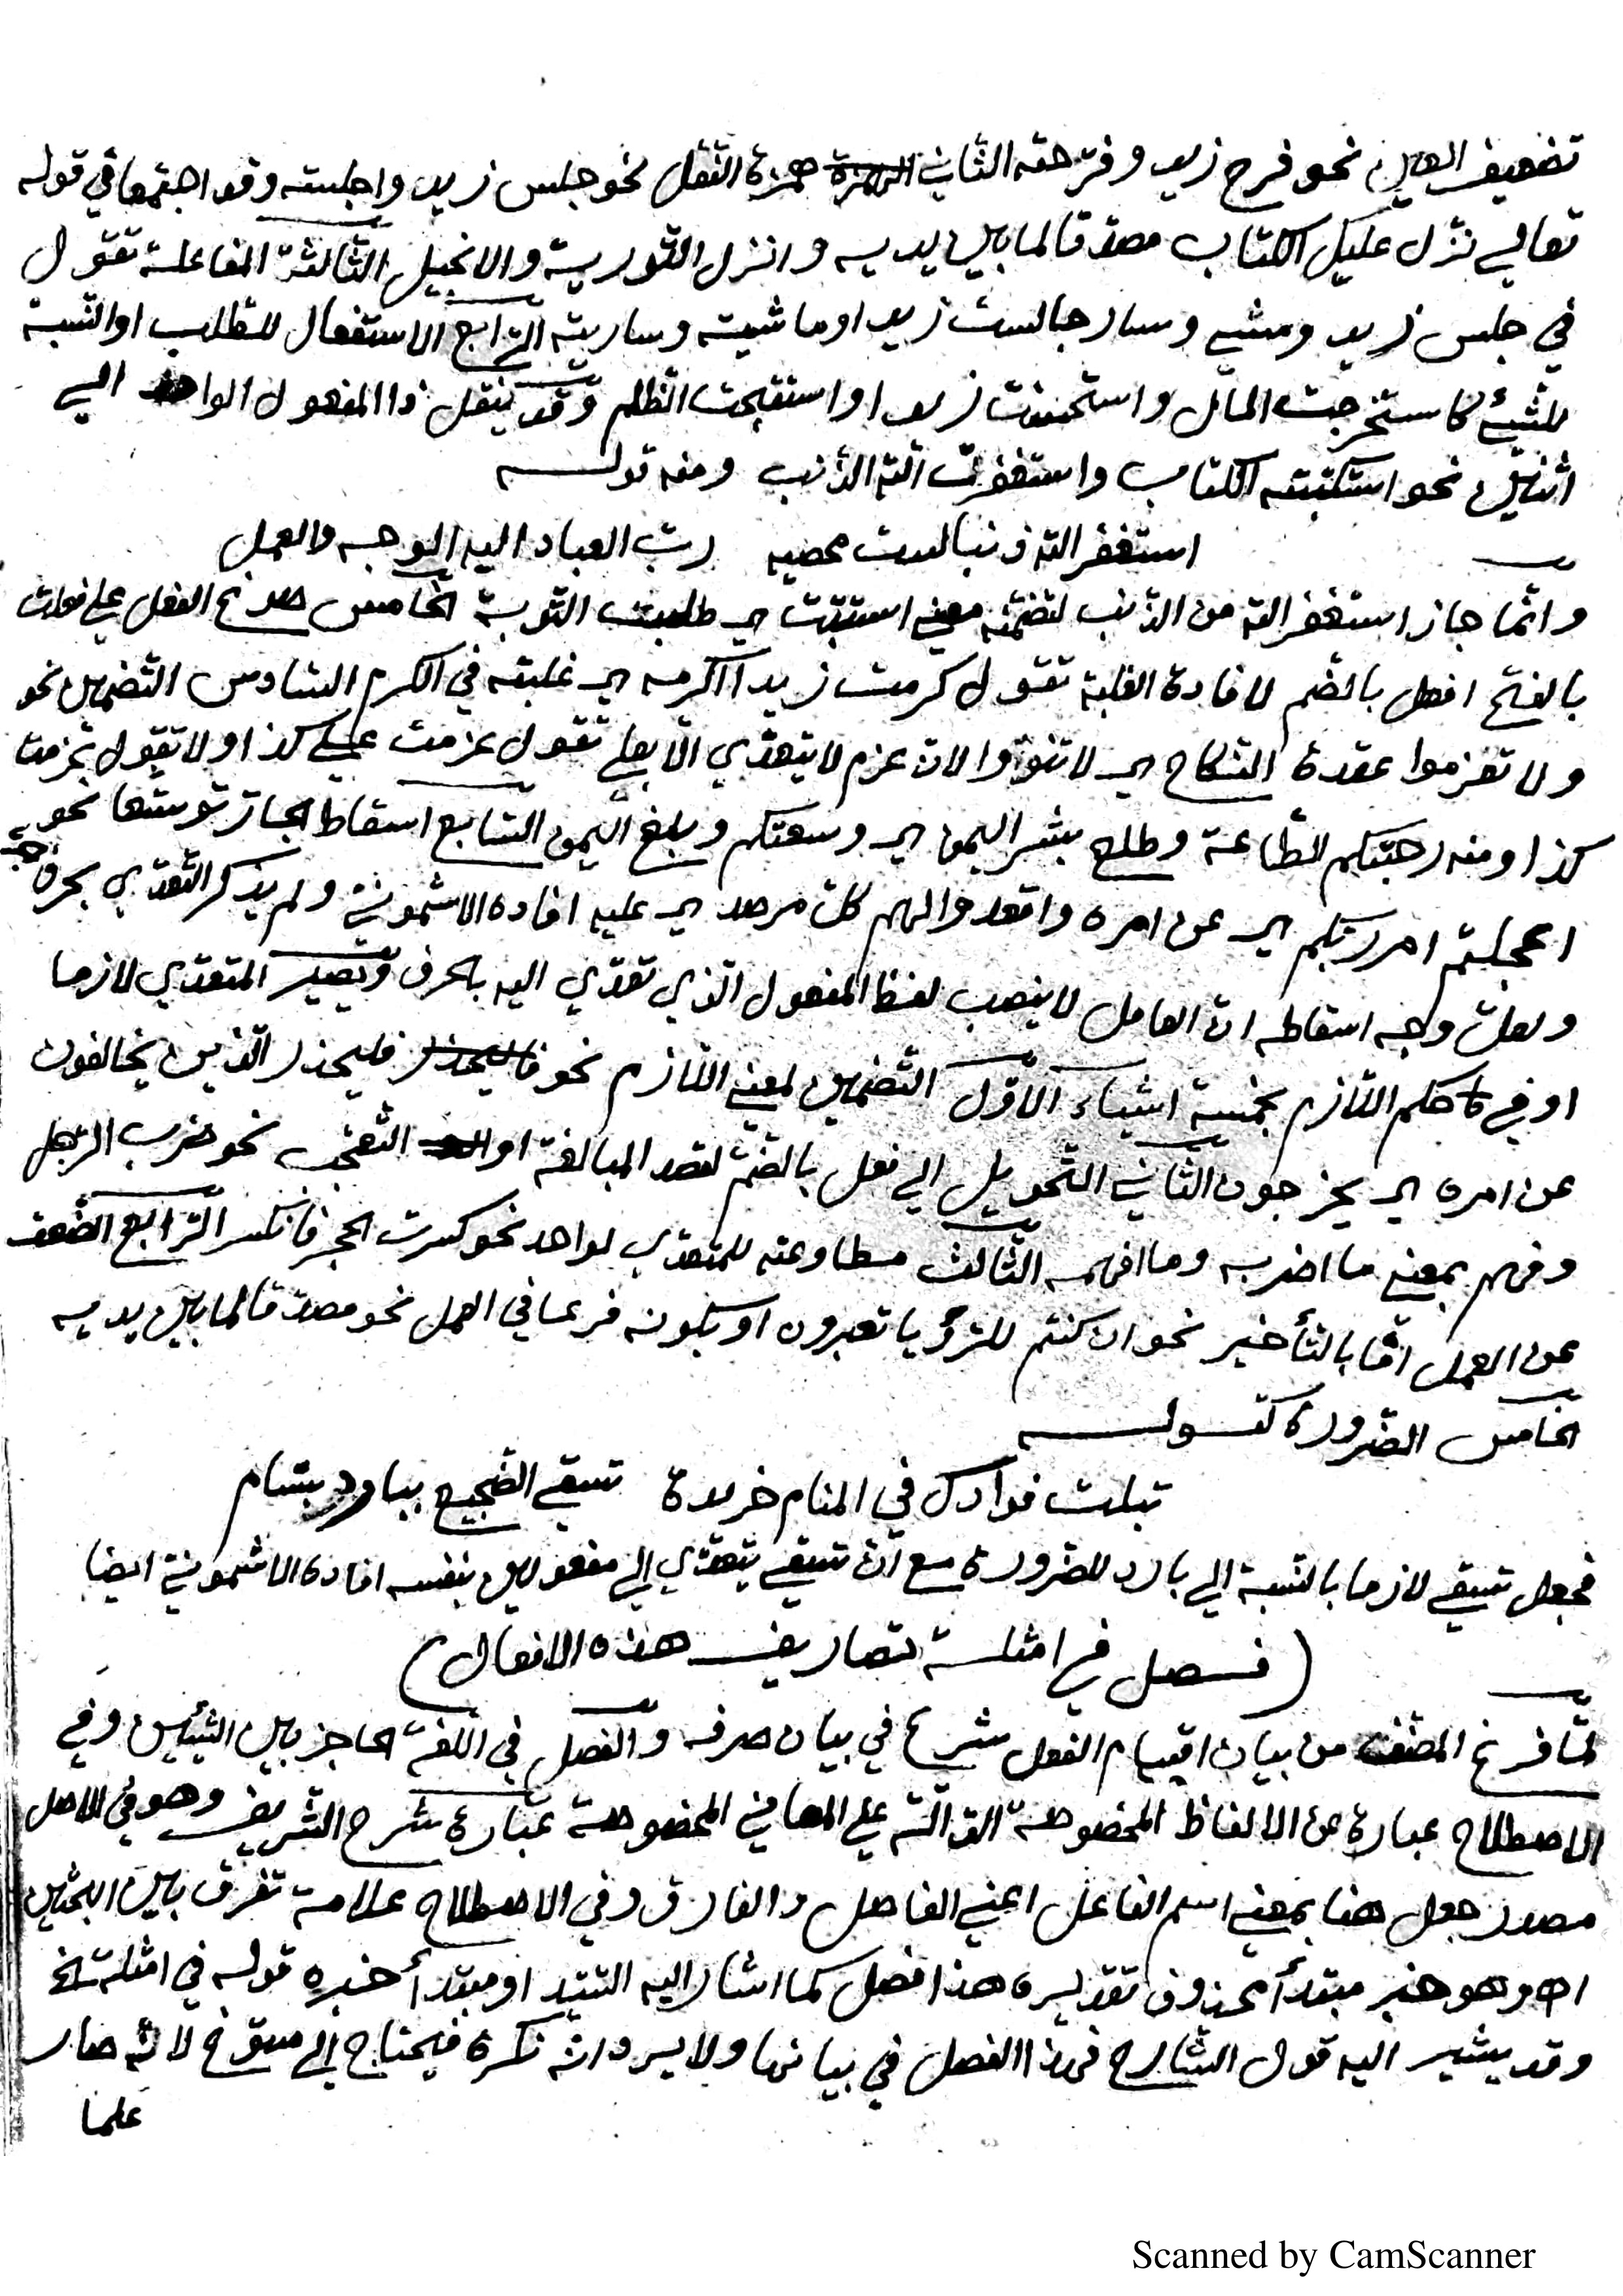 تضعيف العين نحو فرح زيد وفرّحته الثاني همزة النقل نحو جلس زيد واجلسته وقد اجتمعا في قوله
تعالى نزّل عليك الكتاب مصدّقا لما بين يديه وانزل التورية والانجيل الثالث المفاعلة تقول
في جلس زيد ومشى وسار جالست زيدا وماشيته وسايرته الرّابع الاستفعال للطلب او النسبة
للشيئ كاستخرجت المال واستحسنت زيدا واستقبحت الظلم وقد ينقل ذا المفعول الواحد الى
اثنين نحو استكتبته الكتاب واستغفرت الله الذّنب ومنه قوله
استغفر الله ذنبا لست محصيه ربّ العباد اليه الوجه والعمل
وانّما جاز استغفر الله من الذّنب لتضمّنه معنى استتبت اي طلبت التّوبة الخامس صوغ الفعل على فعلت
بالفتح افعل بالضّم لافادة الغلبة تقول كرمت زيدا اكرمه اي غلبته في الكرم السّادس التّضمين نحو
ولا تعزموا عقدة النّكاح اي لا تنووا لانّ عزم لا يتعدّي الّا بعلى تقول عزمت على كذا ولا تقول عزمت
كذا ومنه رحبتكم الطّاعة وطلع بشر اليمن اي وسعتكم وبلغ اليمن السّابع اسقاط الجارّ توسّعا نحو
اعجلتم امر ربّكم اي عن امره واقعدوا لهم كلّ مرصد اي عليه افاده الاشمونيّ ولم يذكر التّعدّي بحرف جرّ
ولعلّ وجه اسقاطه انّ العامل لا ينصب لفظ المفعول الّذي تعدّي اليه بالحرف ويصير المتعدّي لازما
او في حكم اللّازم بخمسة اشياء الاوّل التّضمين لمعنى اللّازم نحو فليحذر الّذين يخالفون
عن امره اي يخرجون الثّاني التّحويل الى فعل بالضّمّ لقصد المبالغة او التّعجّب نحو ضرب الرّجل
وفهم بمعنى ما اضربه وما افهمه الثّالث مطاوعته للمتعدّي لواحد نحو كسرت الحجر فانكسر الرّابع الضّعف
عن العمل امّا بالتّأخير نحو ان كنتم للرّؤيا تعبرون او بكونه فرعا في العمل نحو مصدّقا لما بين يديه
الخامس الضّرورة كقوله
تبلت فوادك في المنام خريدة تسقى الضّجيع ببارد بسّام
فجعل تسقى لازما بالنّسبة الى بارد للضّرورة مع انّ تسقى يتعدّي الى مفعولين بنفسه افاده الاشمونيّ ايضا
(فصل في امثلة تصاريف هذه الافعال)
لمّا فرغ المصنّف من بيان اقسام الفعل شرع في بيان صرفه والفصل في اللّغة الحاجز بين الشّيئين وفي
الاصطلاح عبارة عن الالفاظ المخصوصة الدّالّة على المعاني المخصوصة عبّارة شرح الشّريف وهو في الاصل
مصدر جعل هنا بمعنى اسم الفاعل اعني الفاصل والفارق وفي الاصطلاح علامة تفرق بين البحثين
اه وهو خبر مبتدأ محذوف تقديره هذا فصل كما اشار اليه السّيّد او مبتدأ خبره قوله في امثلة الخ
وقد يشير اليه قول الشّارح فهذا الفصل في بيانها ولا يرد انّه نكرة فيحتاج الى مسوّغ لانّه صار
علما
Scanned by CamScanner